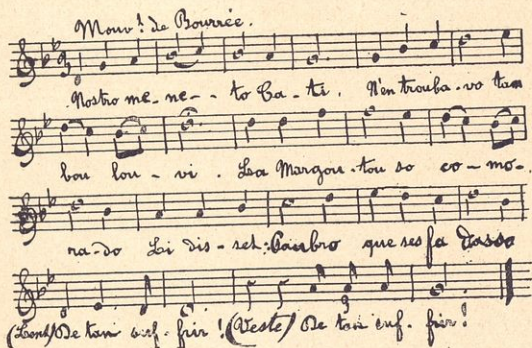 Mouvt de Bourrée.
Nostro me-ne-to Ca-ti. N'en trouba-vo tan
bou lou-vi. La Margou-tou so co-mo-
ra-do Li dis-set: Paubro que ses fa dasso
(Lent) De tan suf-frir! (Veste) De tan suf-frir!